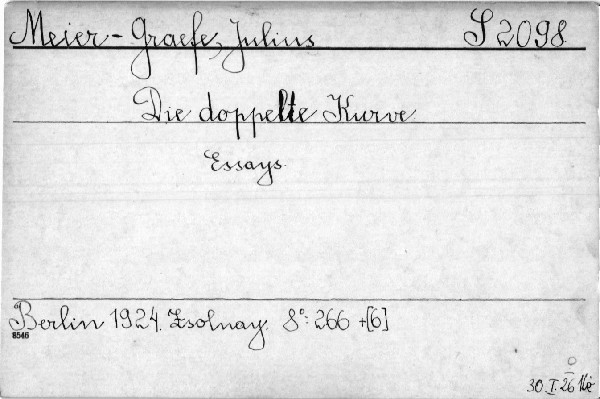 Meier-Graefe, Julius S 2098
Die doppelte Kurve
Essays.
Berlin 1924. Zsolnay. 8°: 266 +[6]
8546
30. I. 26